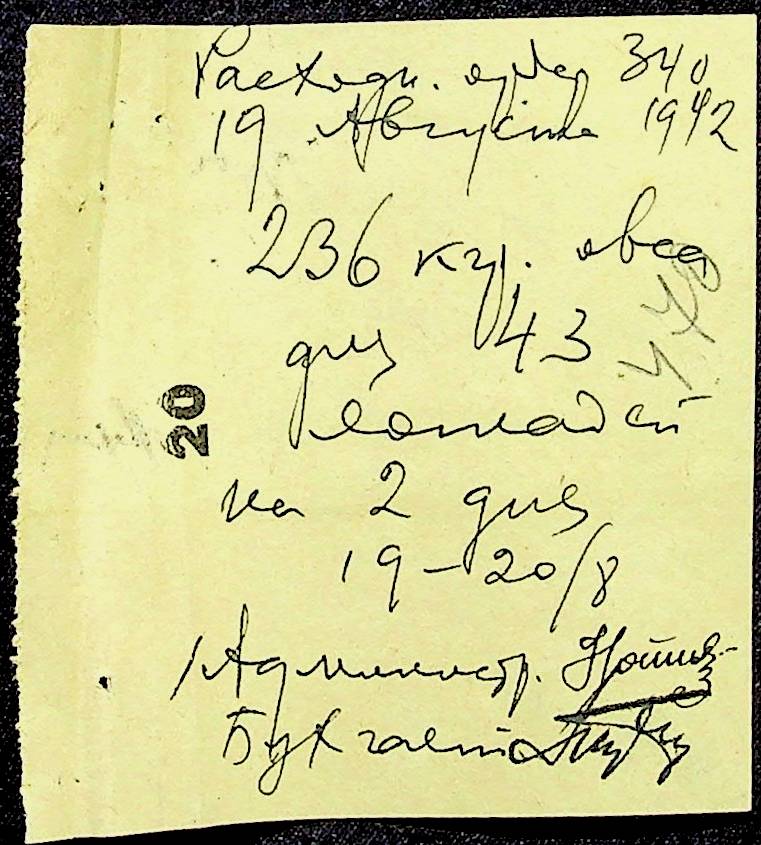 Расходн. ордер 340
19 Августа 1942
236 кгр. овса
для 43
лошадей
на 2 дня
19–20/8
20
Администр.
Бухгалт